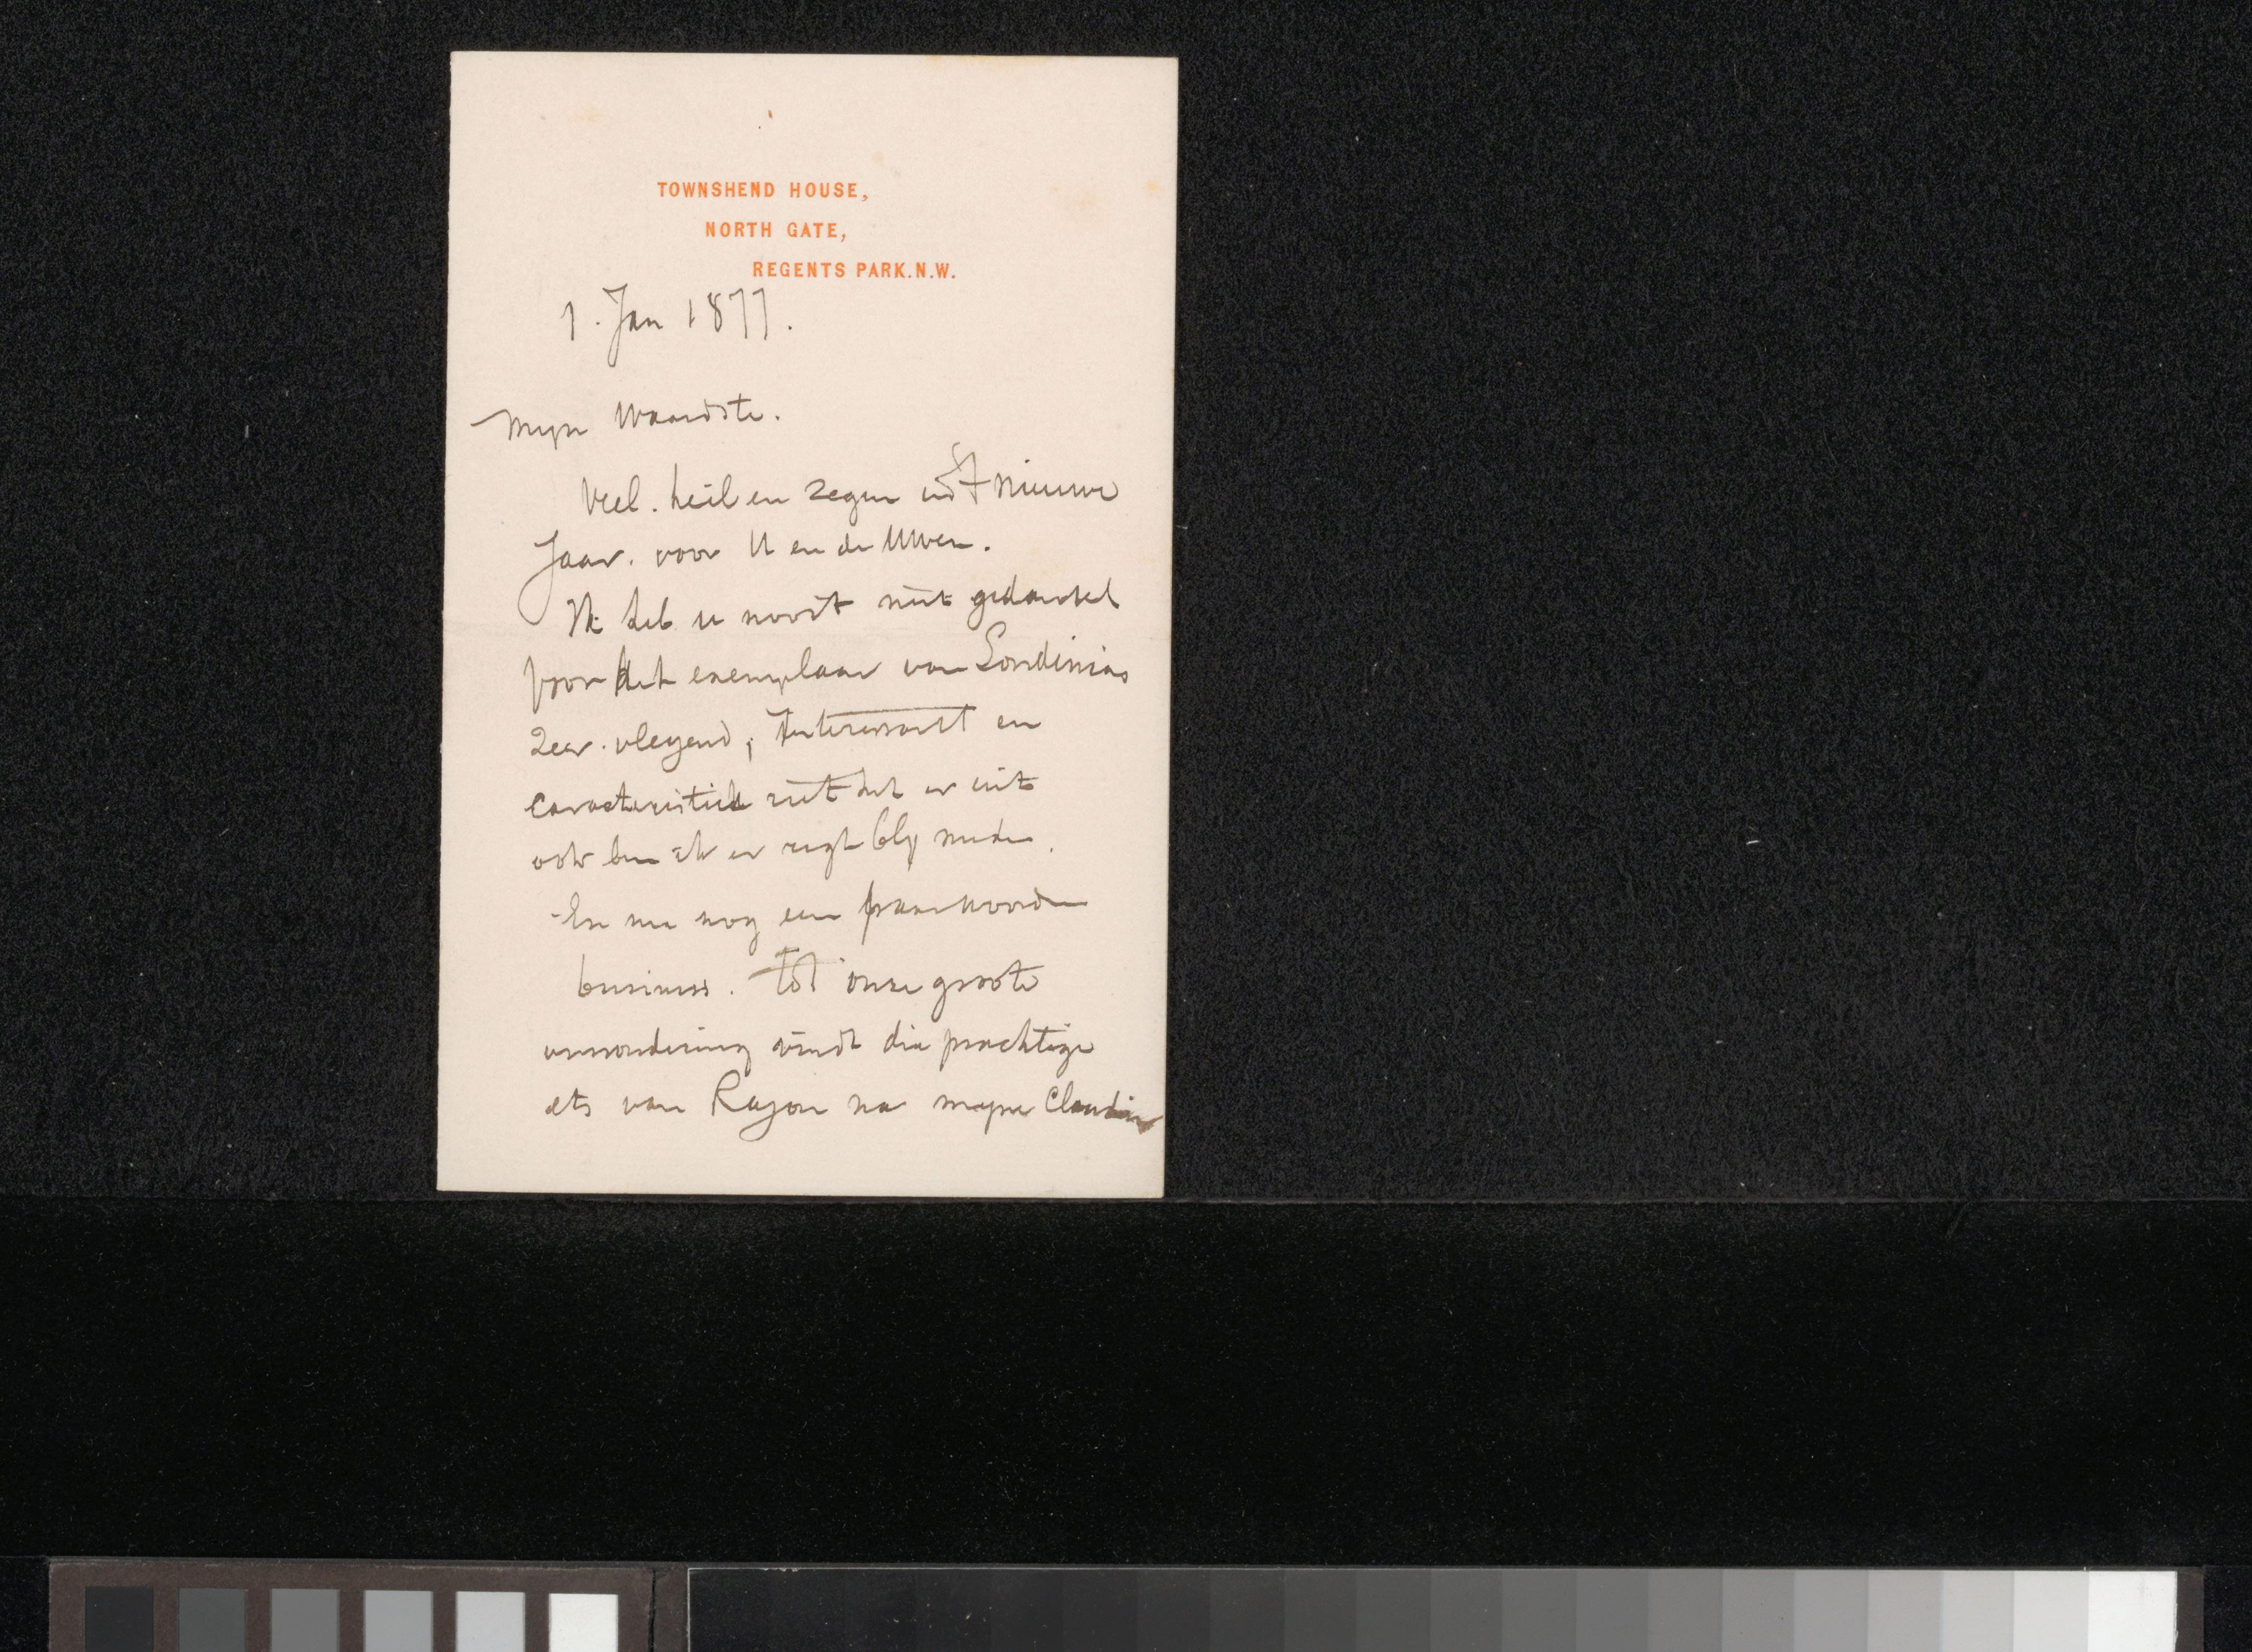 TOWNSHEND HOUSE,
NORTH GATE,
REGENTS PARK. N.W.
1. Jan 1877.
Myn Waardste.
Veel. heil en zegen in't nieuwe
Jaar. voor U en de Uwen.
Ik heb u nooit niet gedankt
voor het exemplaar van Londinias
zeer. vleyend, Interessant en
caracteristiek ziet het er uit
ook ben ik er regt bly mede.
En nu nog een paar woorden
business. Tot onze groote
verwondering vindt die prachtige
ets van Rajon na myne Claudius